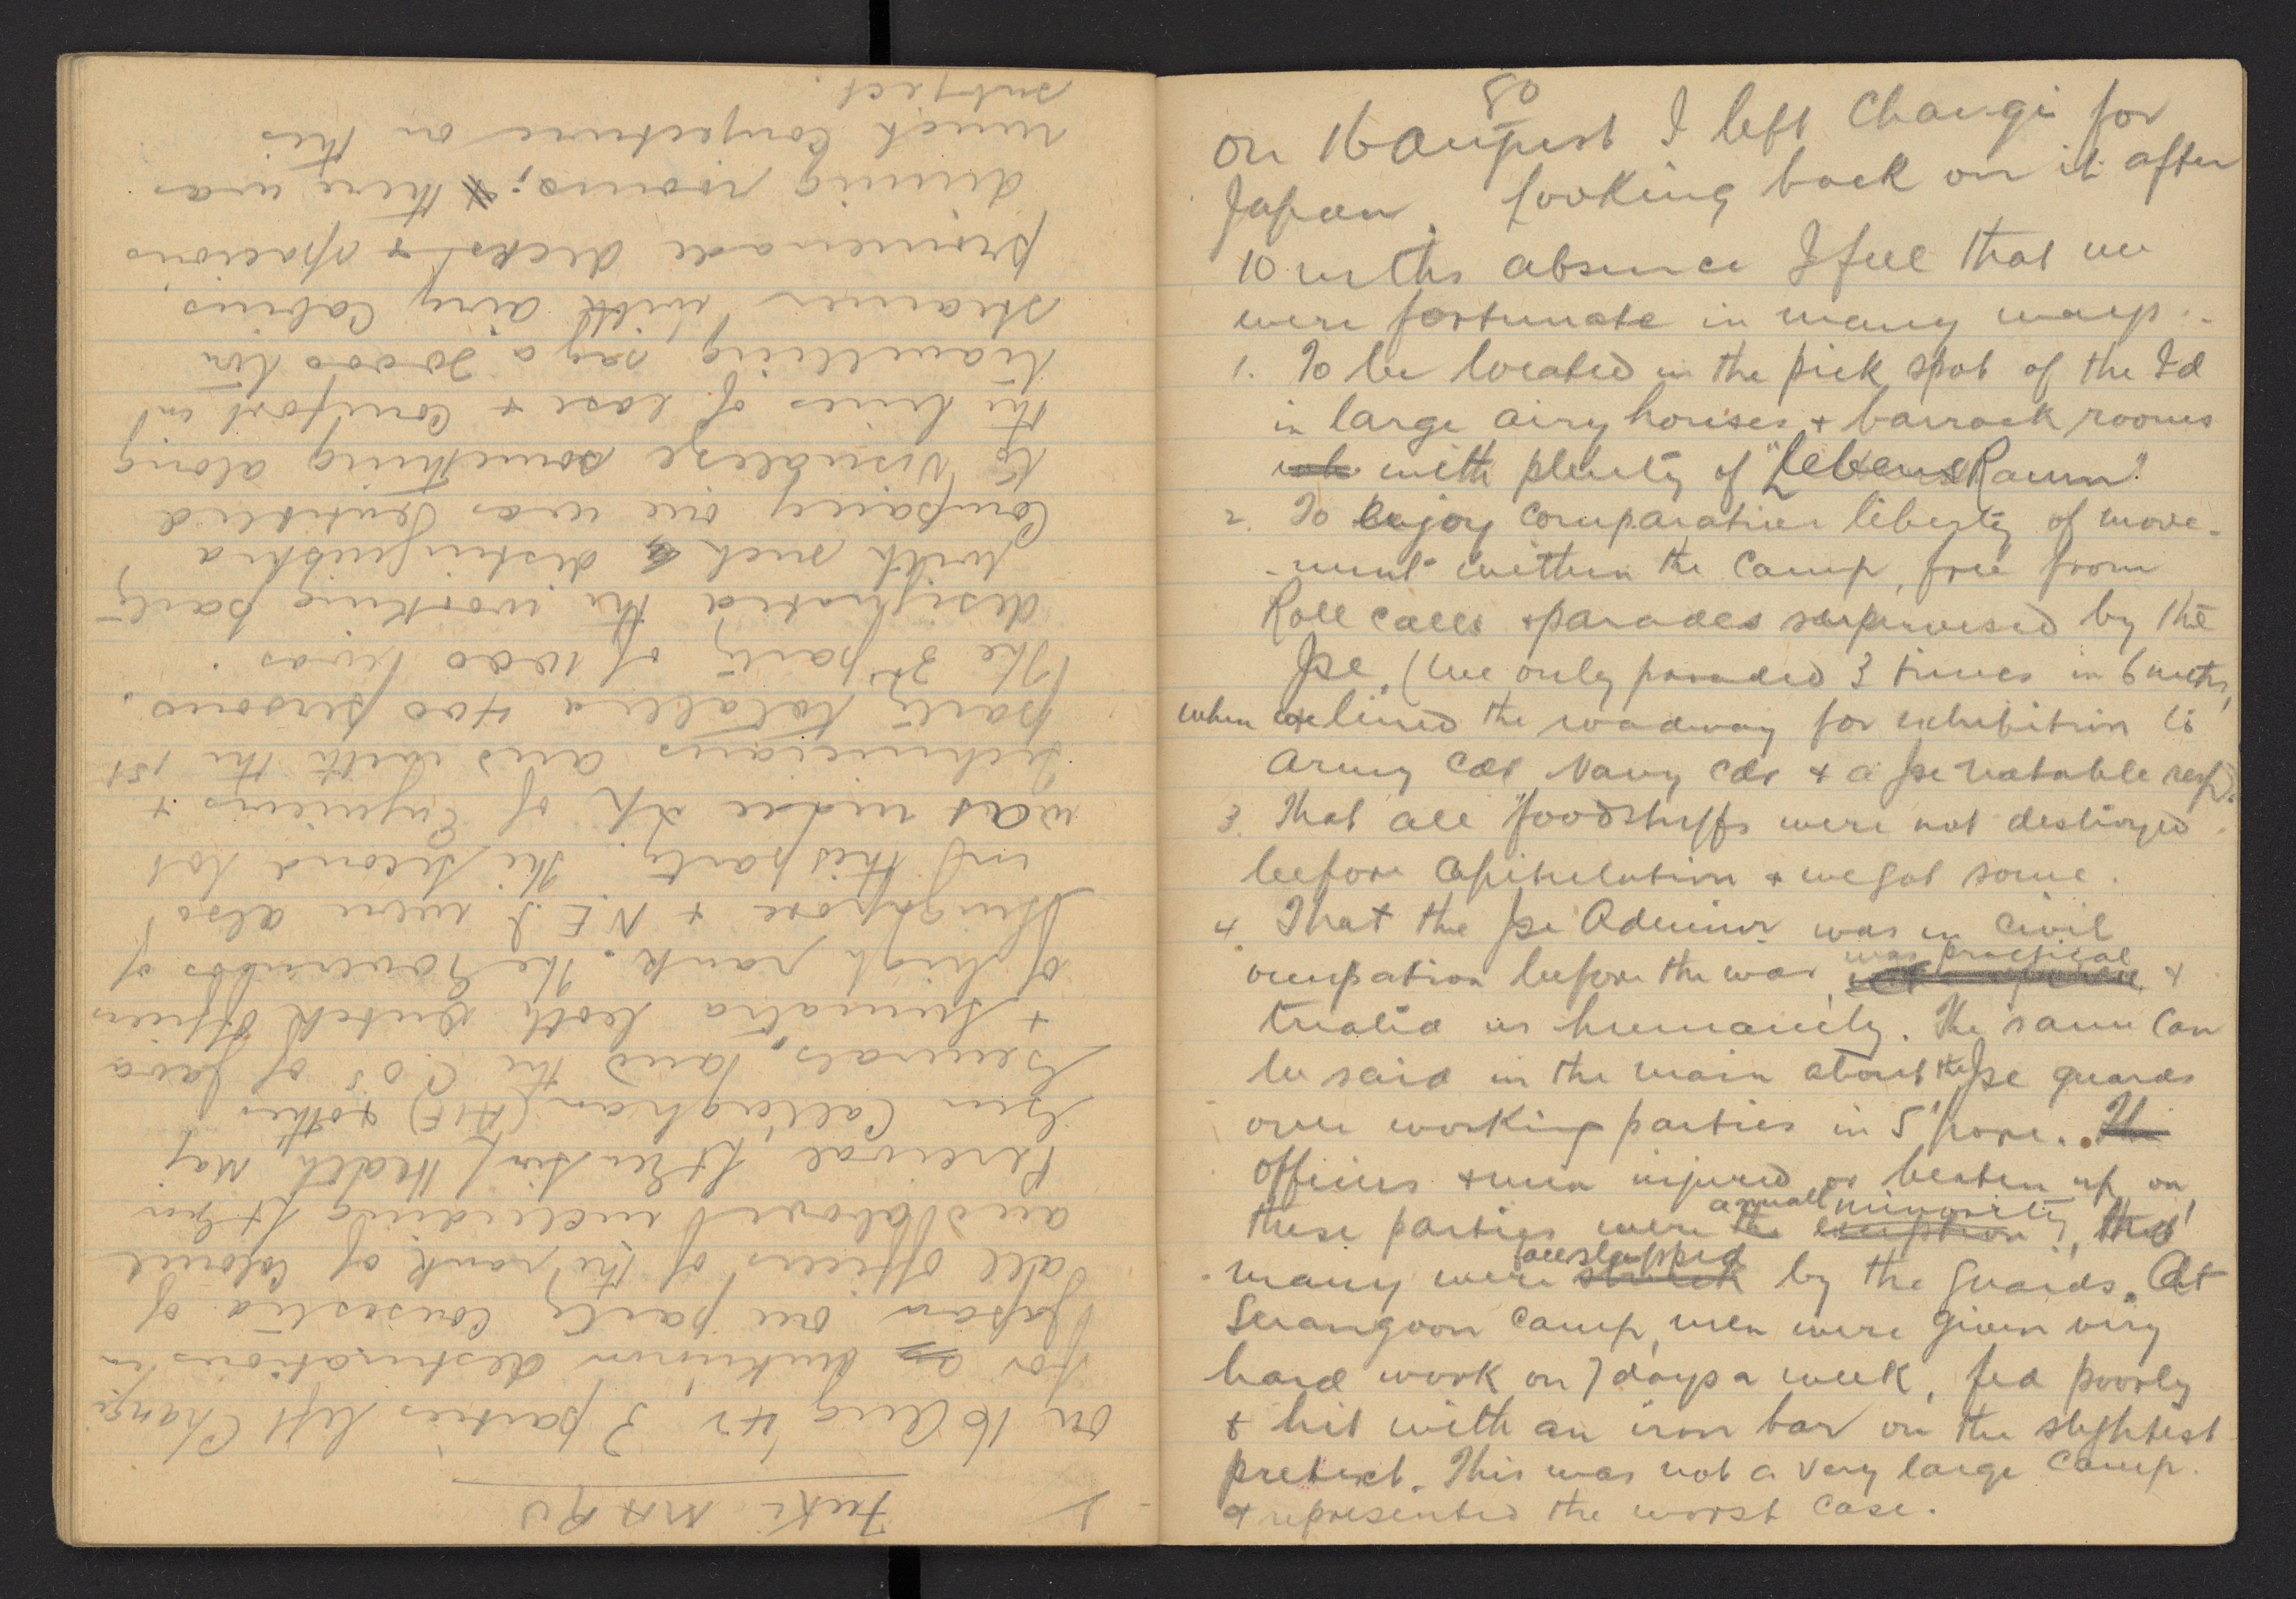 Fuki MARU
On 16 Aug '42, 3 parties left Changi
for unknown destinations in
Japan one party consisted of
all officers of the rank of Colonel
and above, including Lt Gen
Percival Lt Gen Sir L Heath, Maj
Gen Callaghan (AIF) & other
Generals, and the C.O's of Java
& Sumatra, both Dutch officers
of high rank. The Governors of
Singapore & N.E.I were also
in this party. The second lot
was made up of Engineers &
Technicians and with the 1st
party totalled 400 persons.
The 3rd party of 1000 was
designated the working party
With such distinguished
Company one was entitled
to visualise something along
the lines of ease & comfort in
travelling, say a 20000 ton
steamer with airy cabins,
promenade decks & spacious
dining rooms; there was
much conjecture on this
subject.
80
On 16 August I left Changi for
Japan. Looking back on it after
10 mths absence I feel that we
were fortunate in many ways.
1. To be located in the pick spot of the Id
in large airy houses & barrack rooms
with plenty of "LebensRaum".
2. To enjoy comparative liberty of move-
-ment within the Camp, free from
Roll calls & parades supervised by the
Jse. (We only paraded 3 times in 6 mths,
when we lined the roadway for exhibition to
Army Cdr Navy Cdr & a Jse notable resp).
3. That all foodstuffs were not destroyed
before Capitulation & we got some.
4. That the Jse Adminr was in civil
occupation before the war, was practical &
treated us humanely. The same can
be said in the main about the Jse guards
over working parties in S'pore.
Officers & men injured or beaten up on
these parties were a small minority, tho'
many were face slapped by the guards. At
Serangoon Camp, men were given very
hard work on 7 days a week, fed poorly
& hit with an iron bar on the slightest
pretext. This was not a very large Camp
& represented the worst case.